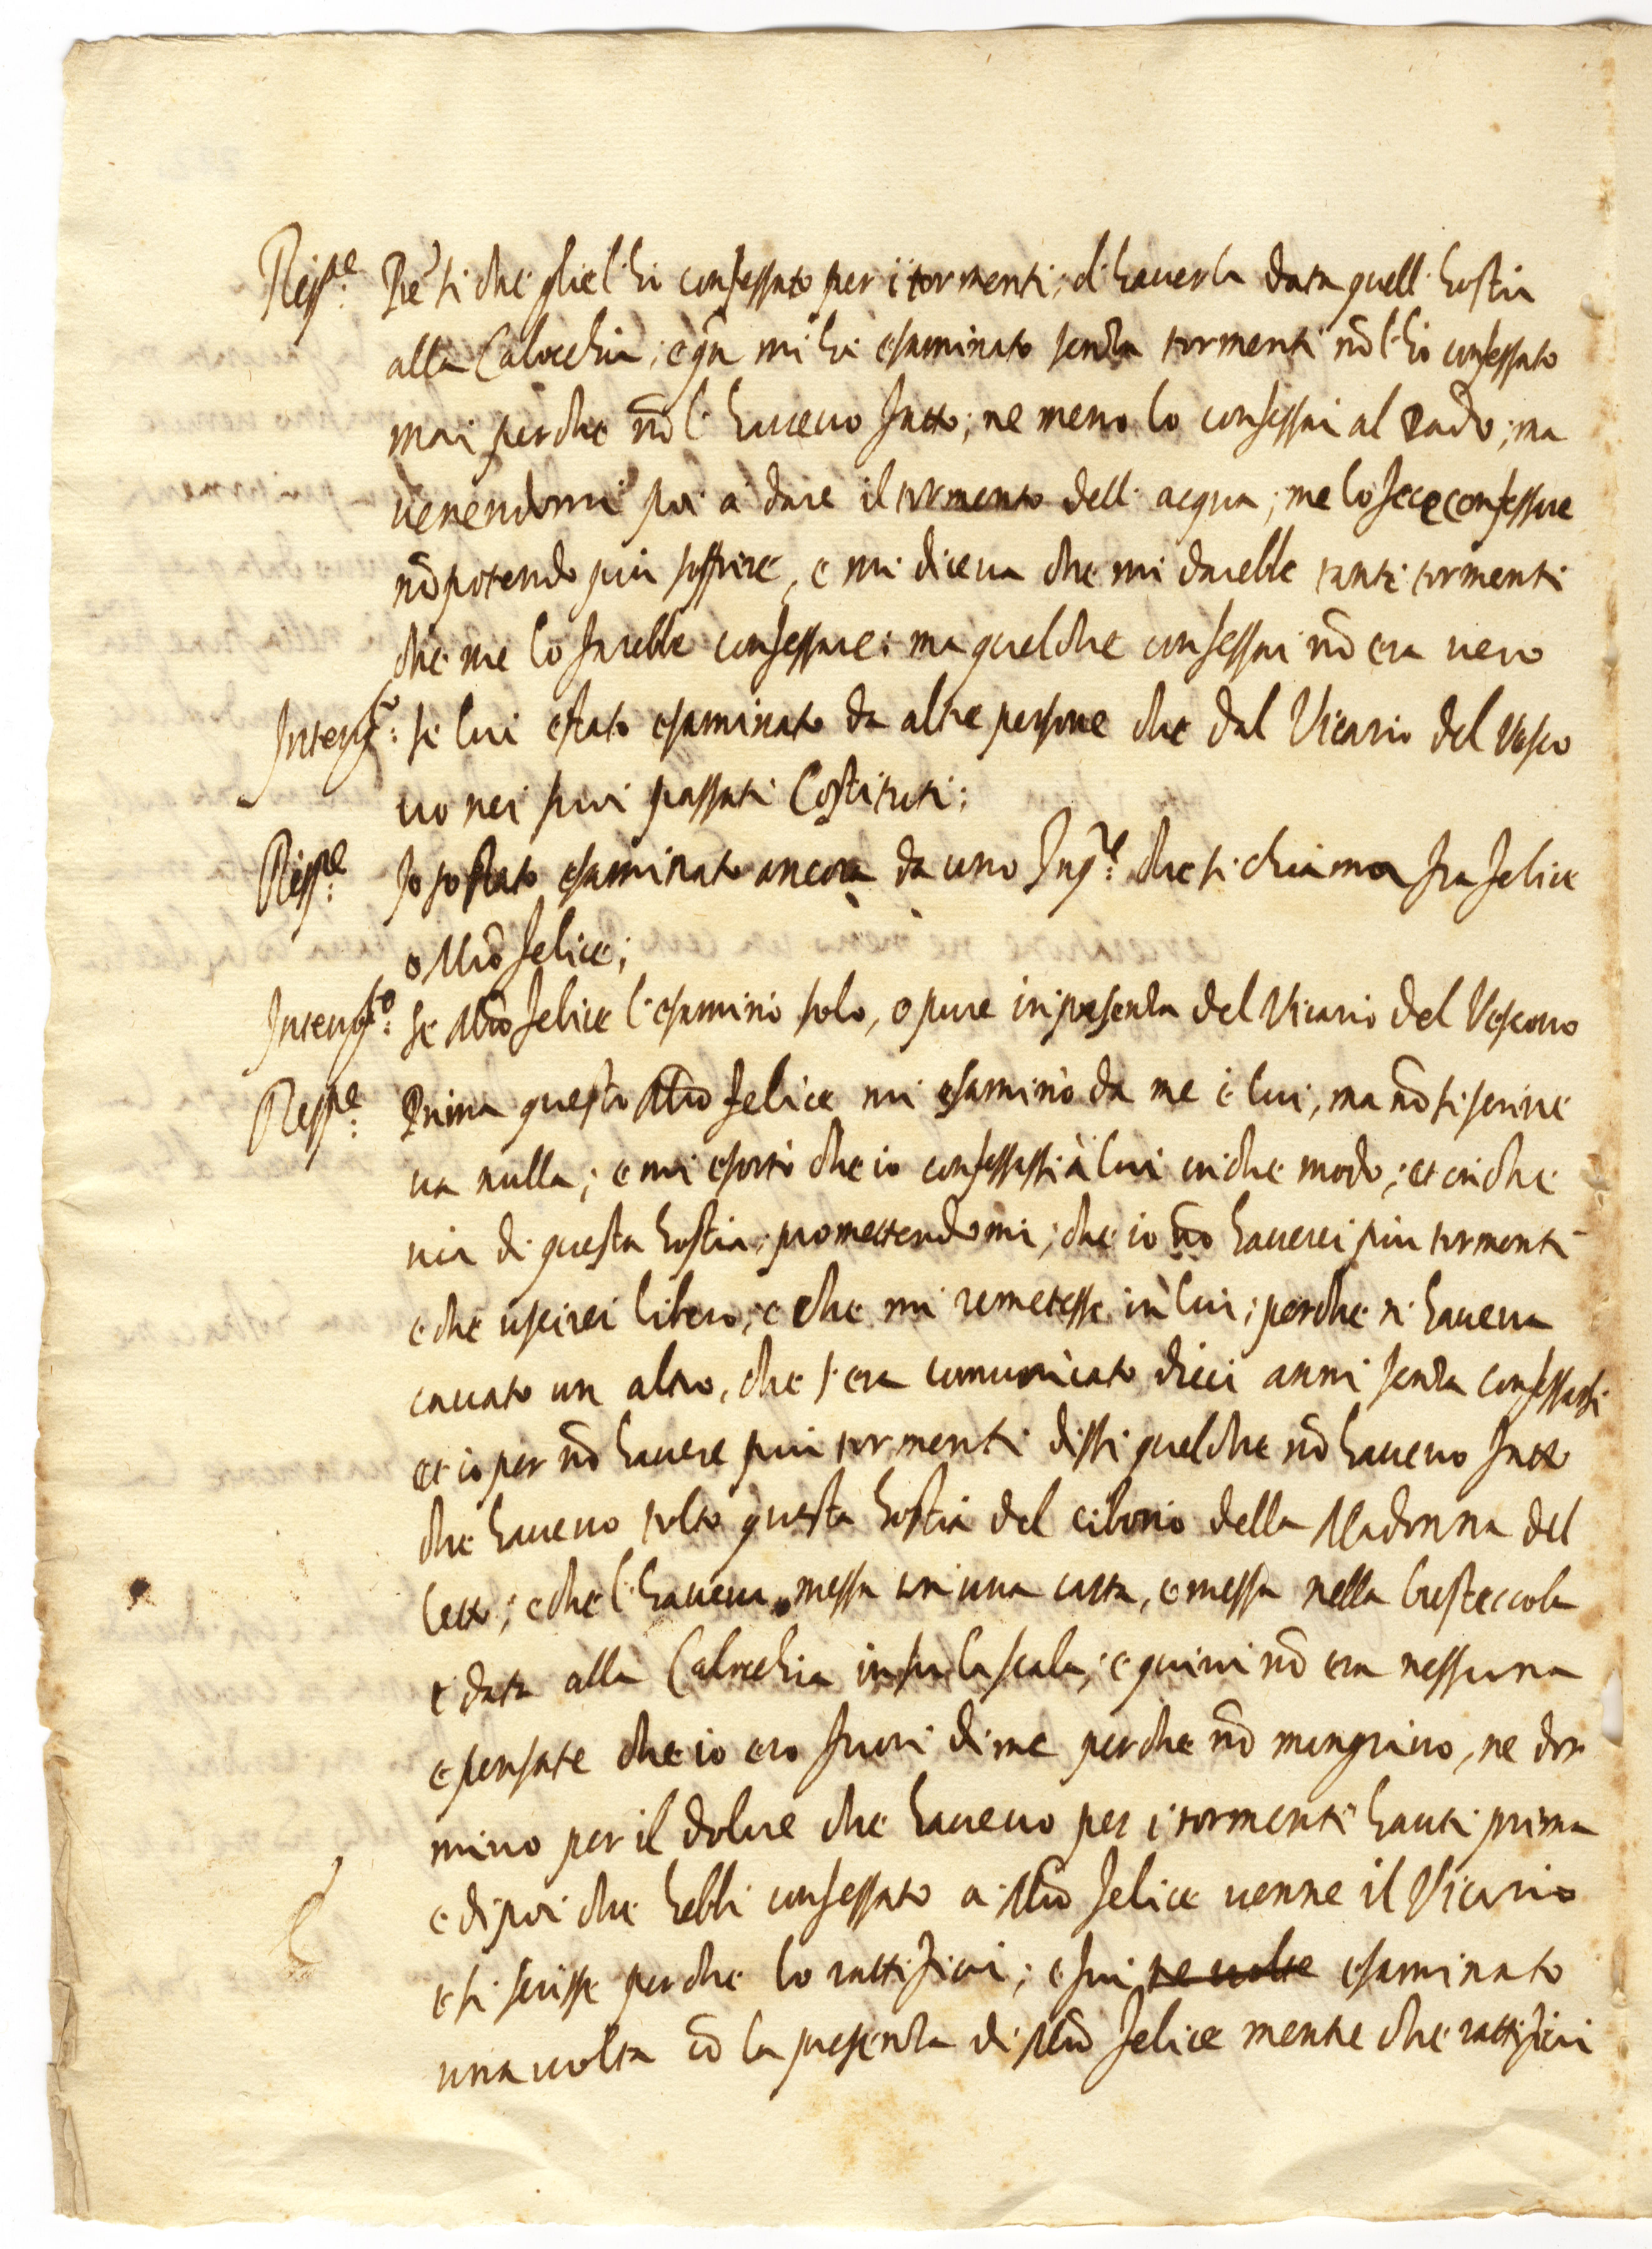 Risp.e Pe ti che gliel'hò confessato per i tormenti, d'hauerla data quell'hostia
alla Calocchia, e qn mi hà esaminato senza tormenti nõ l'hò confessato
mai perche nõ l'haueuo fatto; ne meno lo confessai al Dado; ma
uenendomi poi à dare il tormento dell'acqua, me lo fece confessare
nõ potendo più soffrire, e mi diceua che mi darebbe tanti tormenti
che me lo farebbe confessare: ma quelche confessai nõ era uero
Interrg.to: se lui è stato esaminato da altre persone che dal Vicario del Vesco
uo nei suoi passati Costituti:
Risp.e Io so stato esaminato ancora da uno Inq.re che si chiama fra felice
o Mrõ felice;
Interrg.to: se Mrõ felice l'esaminò solo, o pure in presenza del Vicario del Vescouo
Risp.e Prima questo Mrõ felice mi esaminò da me e lui, ma nõ si scriue
ua nulla; e mi esortò che io confessassi à lui in che modo, et in che
uia di questa hostia, promettendomi, che io nõ hauerei più tormenti
e che uscirei libero, e che mi remetesse in lui; perche n'haueua
cauato un altro, che s'era comunicato dieci anni senza confessarsi
et io per nõ hauere più tormenti dissi quelche nõ haueuo fatto
che haueuo tolto questa hostia del ciborio della Madonna del
latte; e che l'haueua messa in una carta, e messa nella busteccola
e data alla Calocchia in su la scala, e quiui nõ era nessuna
e pensate che io ero fuori di me perche nõ mangiauo, ne dor
miuo per il dolore che haueuo per i tormenti hauti prima
e di poi che hebbi confessato a Mrõ felice uenne il Vicario
e si scrisse perche lo rattificai; e fui tre uolte esaminato
una uolta cõ la presenza di Mrõ felice mentre che rattificai